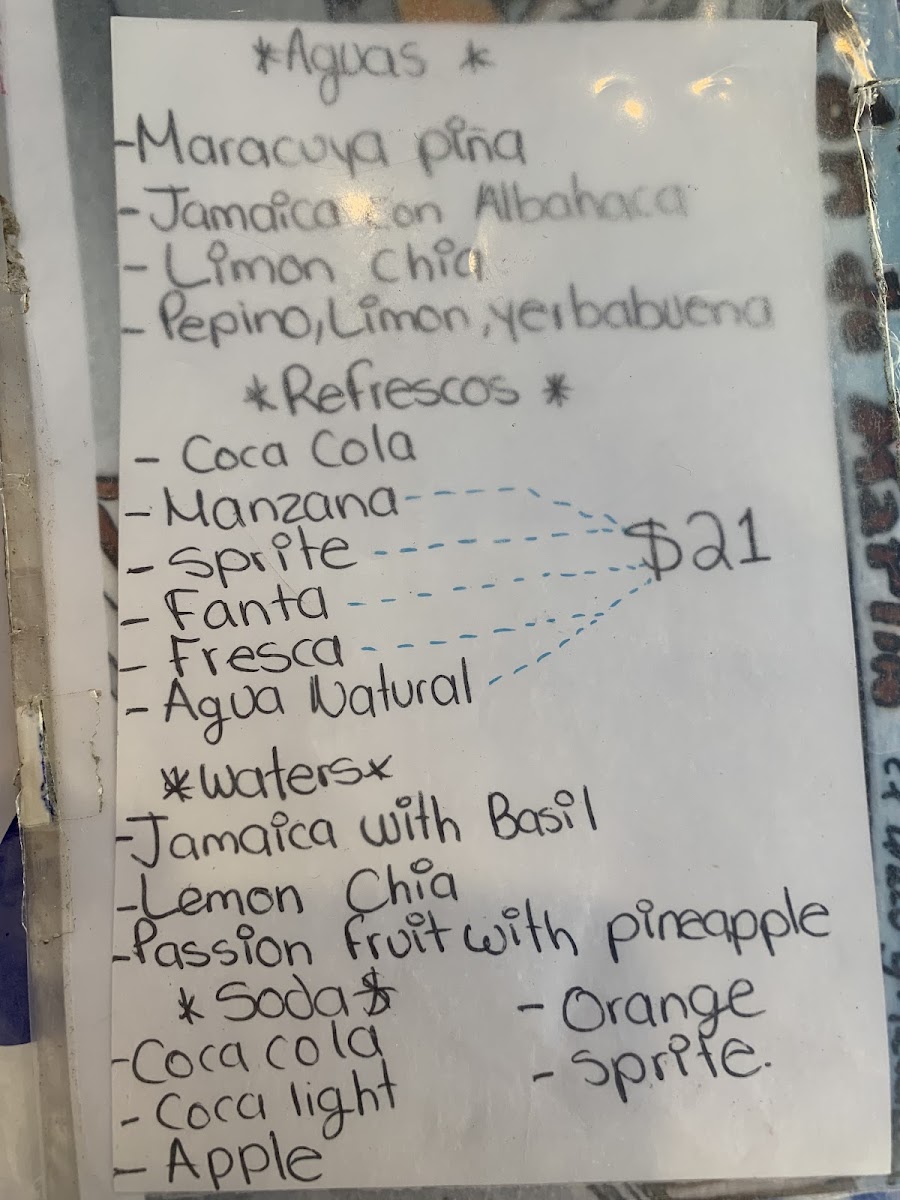 *Aguas *
-Maracuya piña
-Jamaica con Albahaca
- Limon chia
- Pepino, Limon, yerbabuena
*Refrescos *
- Coca Cola
- Manzana
- Sprite
$21
- Fanta
- Fresca
- Agua Natural
*Waters*
-Jamaica with Basil
-Lemon Chia
-Passion fruit with pineapple
*Sodas*
-Coca cola
- Coca light
- Apple
- Orange
- Sprite.